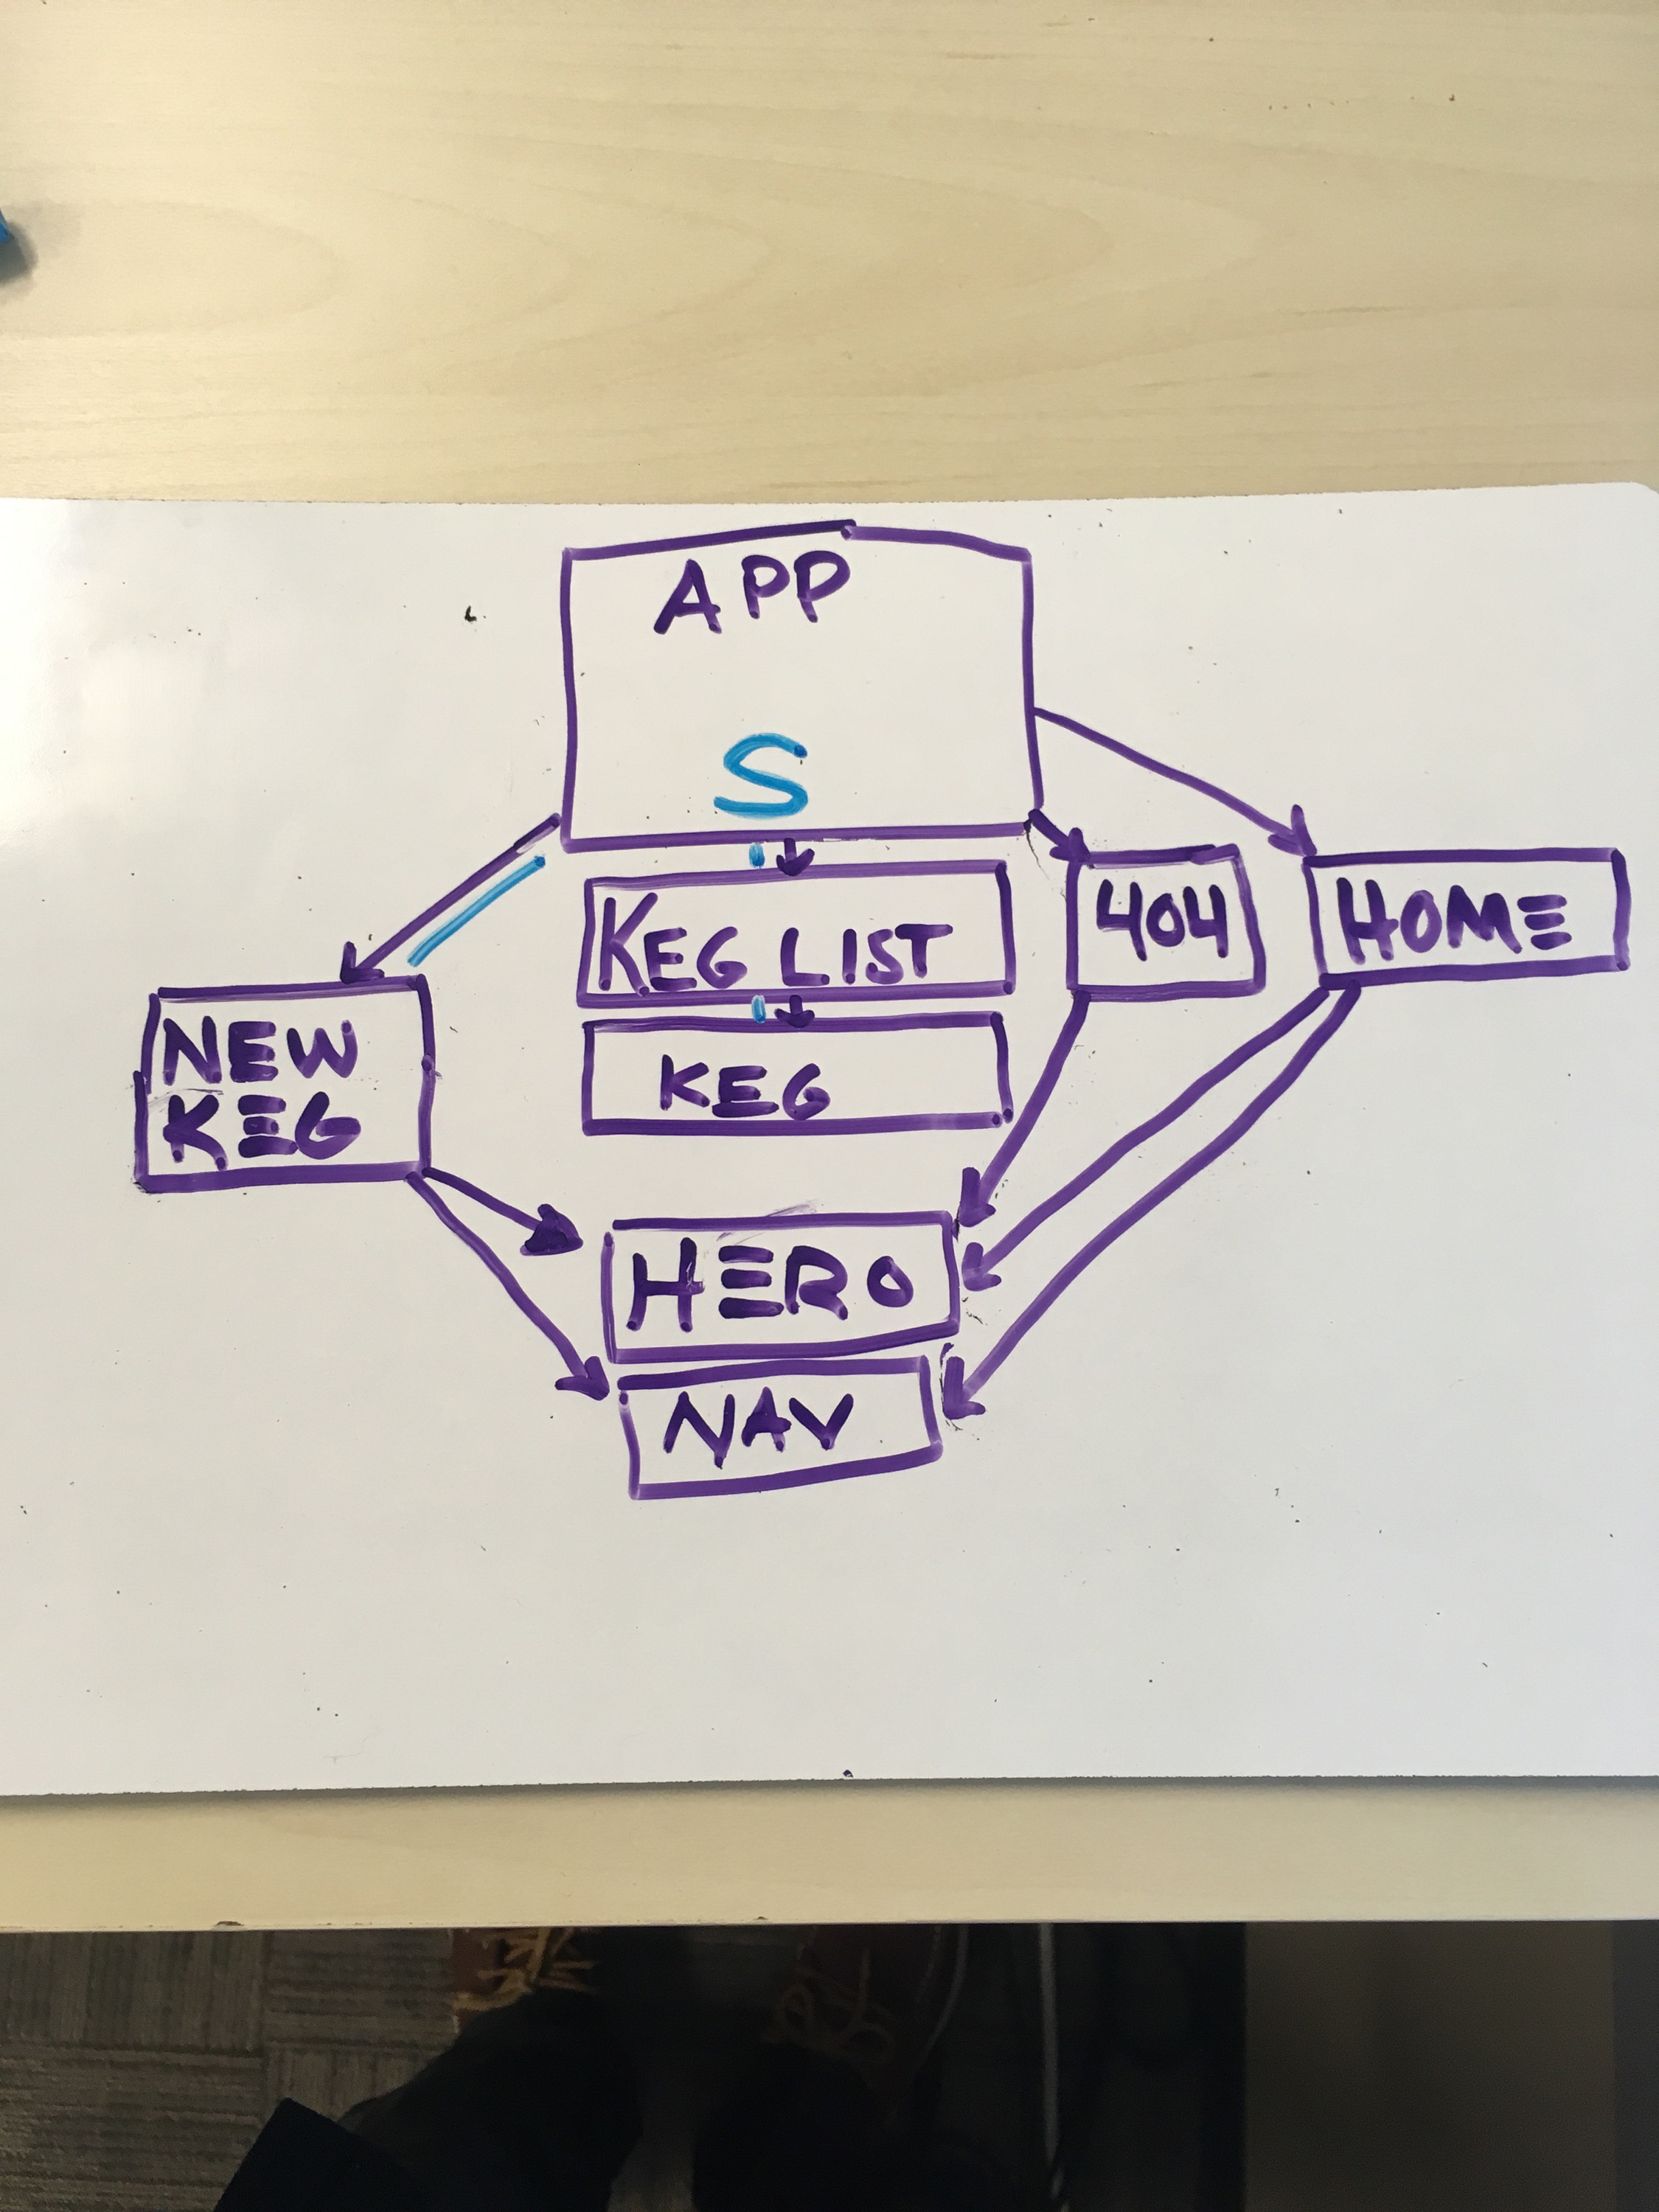 APP
S
KEG LIST
404
HOME
NEW
KEG
KEG
HERO
NAV